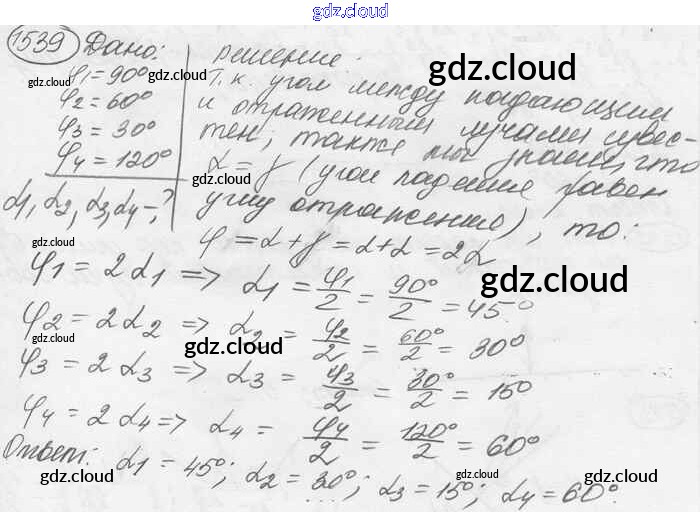 gdz.cloud
1539 Дано:
φ1 = 90°
φ2 = 60°
φ3 = 30°
φ4 = 120°
α1, α2, α3, α4 -?
Решение.
Т.к. угол между падающим
и отраженным лучами извес-
тен, также мы знаем, что
α = γ (угол падения равен
углу отражения), то:
φ = α + γ = α + α = 2α
φ1 = 2α1 => α1 = φ1/2 = 90°/2 = 45°
φ2 = 2α2 => α2 = φ2/2 = 60°/2 = 30°
φ3 = 2α3 => α3 = φ3/2 = 30°/2 = 15°
φ4 = 2α4 => α4 = φ4/2 = 120°/2 = 60°
Ответ: α1 = 45°; α2 = 30°; α3 = 15°; α4 = 60°.
gdz.cloud
gdz.cloud
gdz.cloud
gdz.cloud
gdz.cloud
gdz.cloud
gdz.cloud
gdz.cloud
gdz.cloud
gdz.cloud
gdz.cloud
gdz.cloud
gdz.cloud